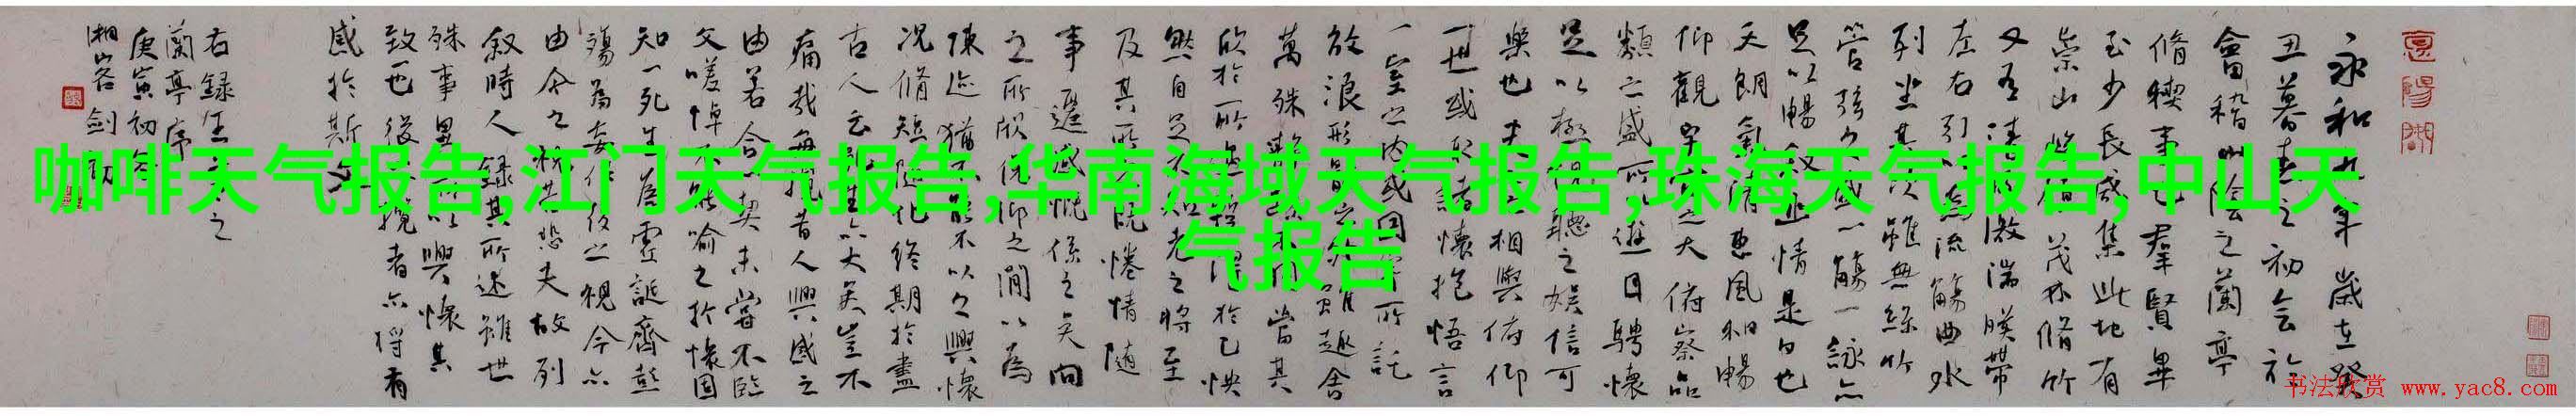 咖啡天气报告,江门天气报告,华南海域天气报告,珠海天气报告,中山天
气报告
永和九年歲在癸
丑暮春之初会於
會稽山陰之蘭亭
脩禊事也羣賢畢
至少長咸集此地有
崇山峻領茂林脩竹
又有清流激湍暎帶
左右引以為流觴曲水
列坐其次雖無絲竹
管弦之盛一觴一詠亦
足以暢叙幽情是日也
天朗氣清惠風和暢
仰觀宇宙之大俯察品
類之盛所以遊目騁懷
足以極視聽之娛信可
樂也夫人之相與俯仰
一世或取諸懷抱悟言
一室之内或因寄所託
放浪形骸之外雖趣舍
萬殊靜躁不同當其
欣於所遇暫得於己怏
然自足不知老之將至
及其所之既惓情随
事遷感慨係之矣向
之所欣俛仰之閒以為
陳迹猶不能不以之興懷
況脩短随化終期於盡
古人云死生亦大矣豈不
痛哉每攬昔人興感之
由若合一契未嘗不臨
文嗟悼不能喻之於懷固
知一死生為虛誕齊彭
殤為妄作後之視今亦
由今之視昔悲夫故列
叙時人録其所述雖世
殊事異所以興懷其
致一也後之攬者亦將有
感於斯文
右録王羲之
蘭亭序
庚寅初冬
湘客剑
书法欣赏 www.yac8.com